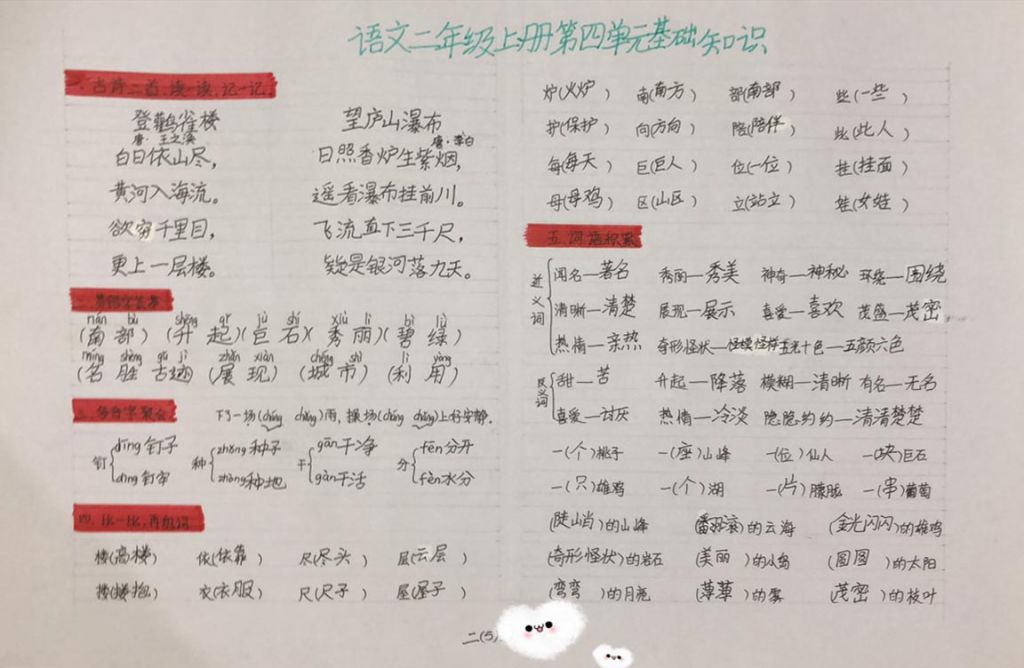 语文二年级上册第四单元基础知识
一、古诗二首,读一读,记一记。
登鹳雀楼
唐·王之涣
白日依山尽,
黄河入海流。
欲穷千里目,
更上一层楼。
望庐山瀑布
唐·李白
日照香炉生紫烟,
遥看瀑布挂前川。
飞流直下三千尺,
疑是银河落九天。
nán bù shēng qǐ jù shí xiù lì bì lǜ
(南部) (升起)(巨石)(秀丽)(碧绿)
míng shèng gǔ jì zhǎn xiàn chéng shì lì yòng
(名胜古迹) (展现) (城市) (利用)
三、多音字聚会
下了一场(cháng chǎng)雨,操场(cháng chǎng)上好安静.
钉 dīng钉子 种 zhǒng种子 干 gān干净 分 fēn分开
dìng钉牢 zhòng种地 gàn干活 fèn水分
四、比一比,再组词
楼(高楼) 依(依靠) 尽(尽头) 层(云层)
搂(搂抱) 衣(衣服) 尺(尺子) 屋(屋子)
炉(火炉) 南(南方) 部(南部) 些(一些)
护(保护) 向(方向) 陪(陪伴) 此(此人)
每(每天) 巨(巨人) 位(一位) 挂(挂面)
母(母鸡) 区(山区) 立(站立) 娃(女娃)
五、词语积累
近义词
闻名—著名 秀丽—秀美 神奇—神秘 环绕—围绕
清晰—清楚 展现—展示 喜爱—喜欢 茂盛—茂密
热情—亲热 奇形怪状—怪模怪样 五光十色—五颜六色
反义词
甜—苦 升起—降落 模糊—清晰 有名—无名
喜爱—讨厌 热情—冷淡 隐隐约约—清清楚楚
一(个)桃子 一(座)山峰 一(位)仙人 一(块)巨石
一(只)雄鸡 一(个)湖 一(片)朦胧 一(串)葡萄
(陡峭)的山峰 (翻滚)的云海 (金光闪闪)的雄鸡
(奇形怪状)的岩石 (美丽)的小岛 (圆圆)的太阳
(弯弯)的月亮 (薄薄)的雾 (茂密)的枝叶
二(5)